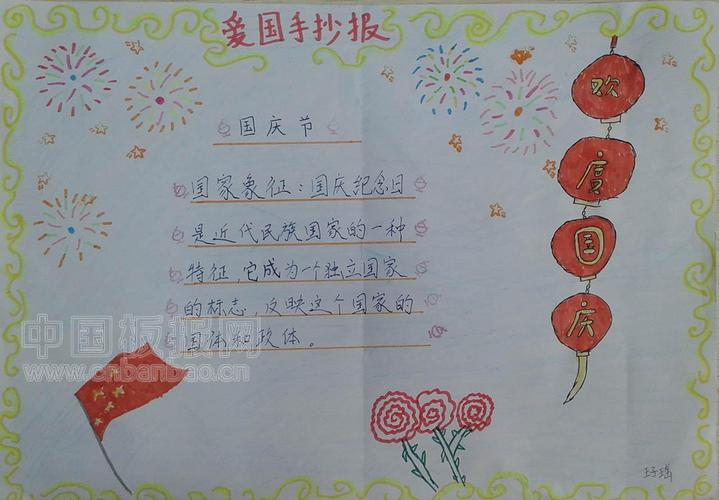 爱国手抄报
国庆节
国家象征：国庆纪念日
是近代民族国家的一种
特征，它成为一个独立国家
的标志，反映这个国家的
国体和政体。
欢
度
国
庆
中国板报网
www.cnbanbao.cn